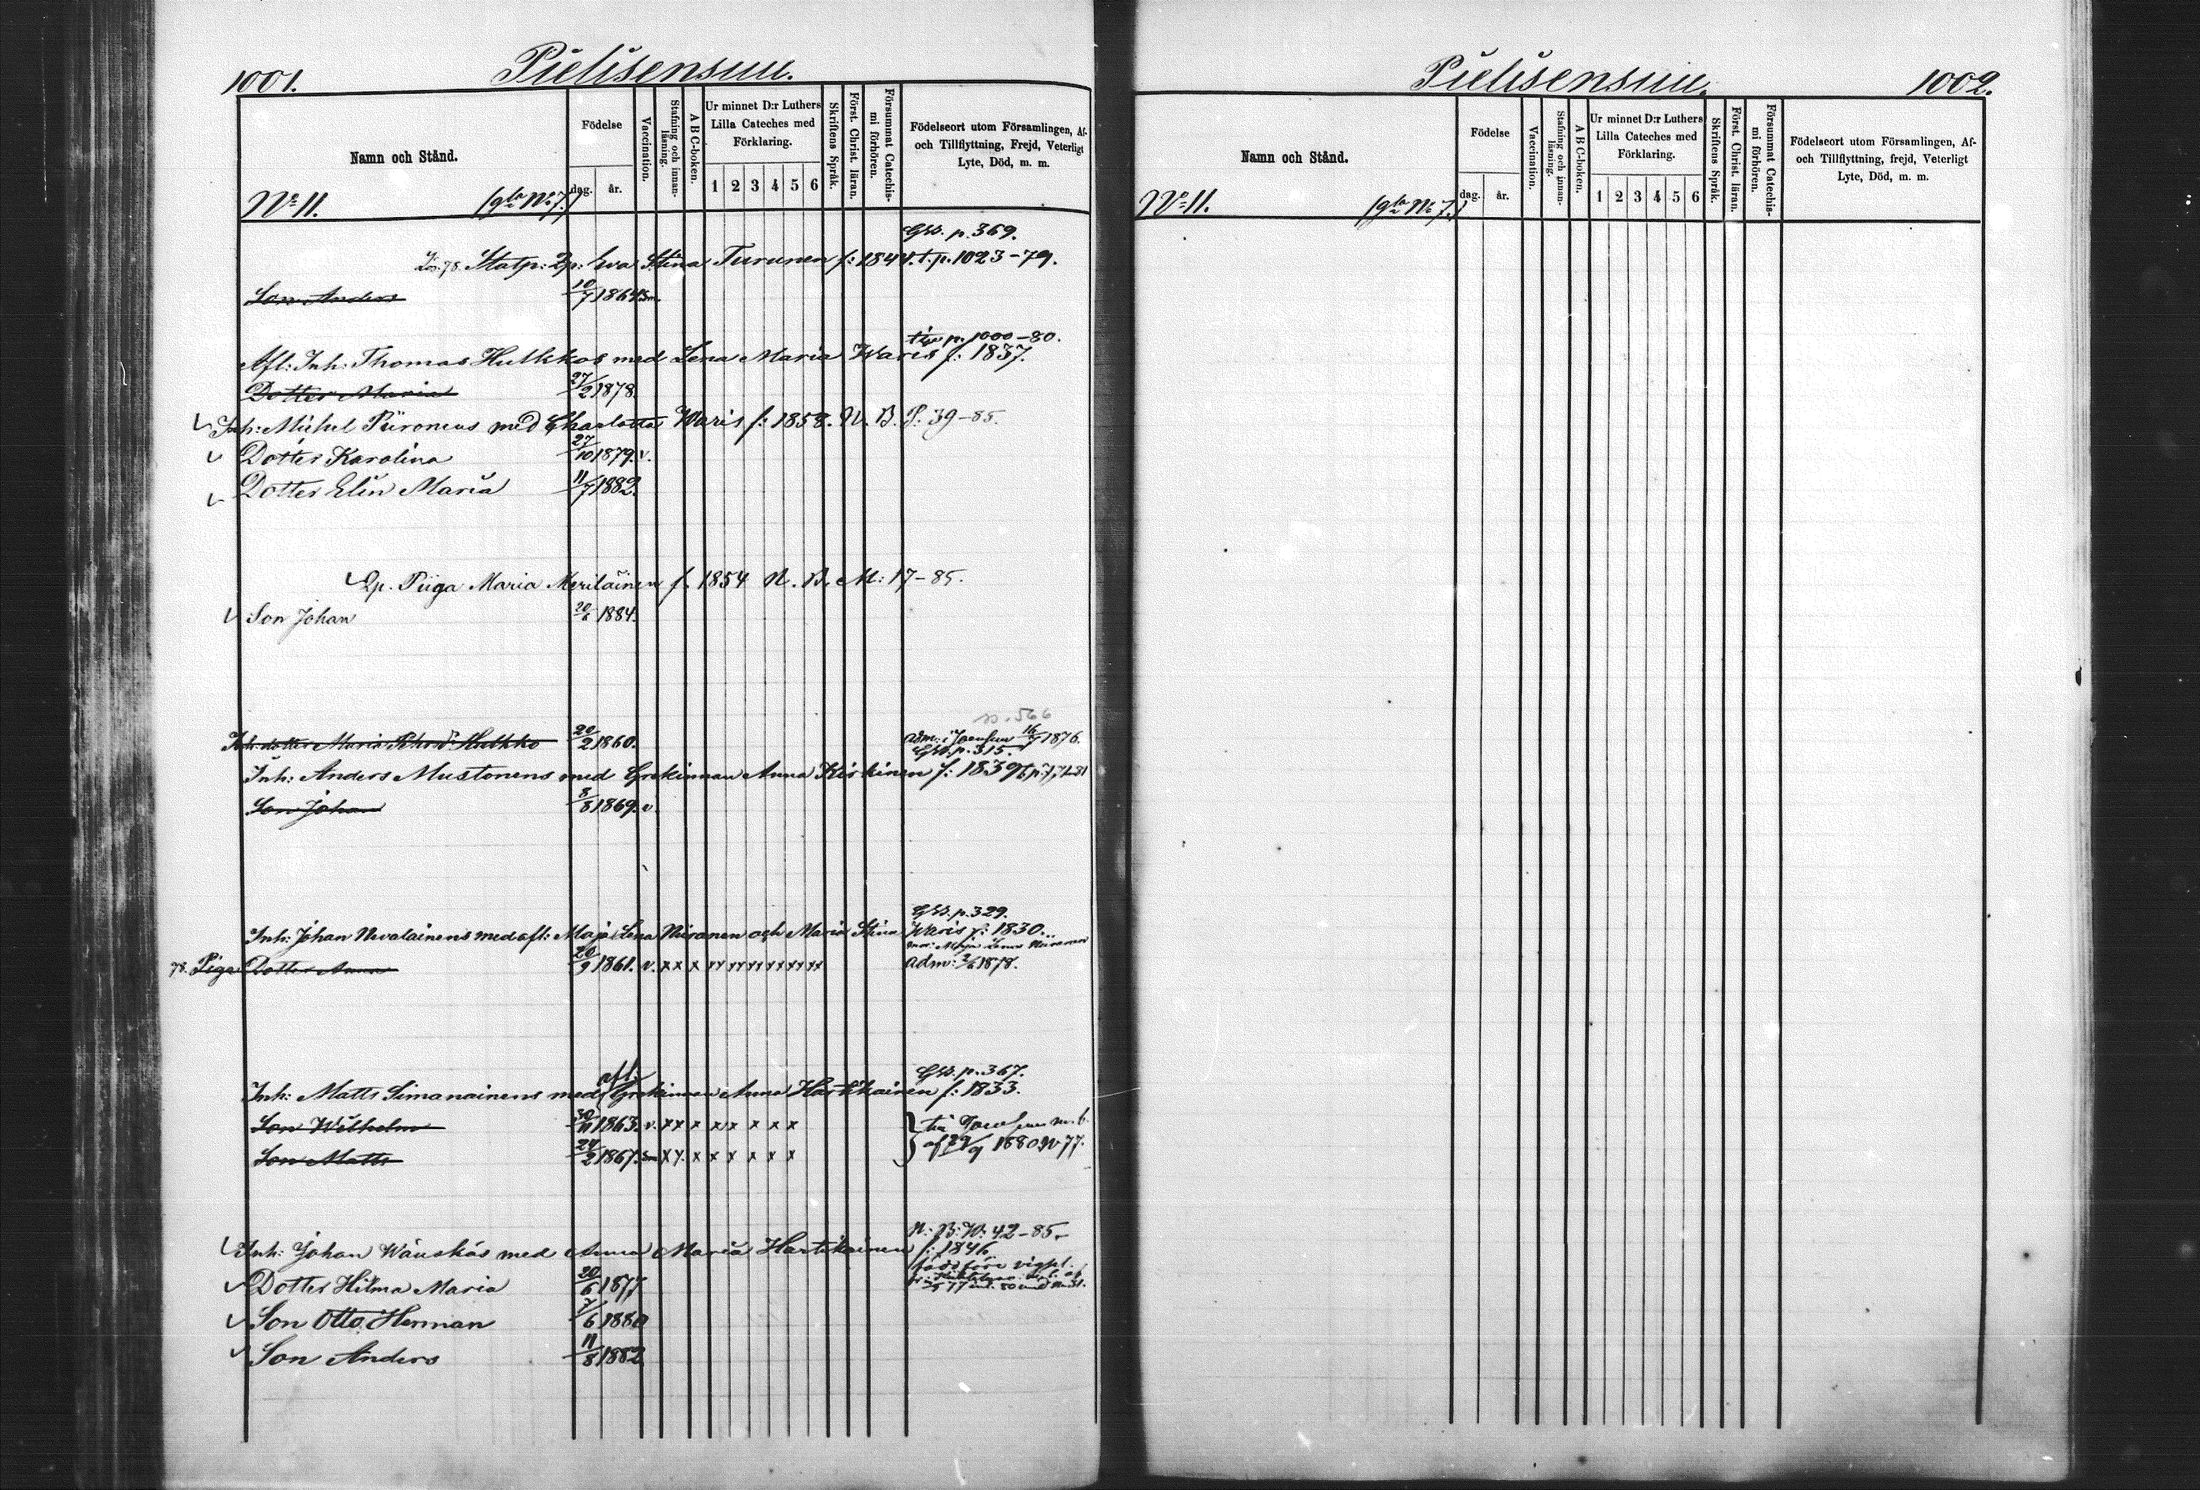 1001.
Pielisensuu.
Namn och Stånd.
Födelse
dag. år.
Vaccination.
Stafning och innanläsning.
A B C-boken.
Ur minnet D:r Luthers Lilla Cateches med Förklaring.
1 2 3 4 5 6
Skriftens Språk.
Först. Christ. läran.
Försummat Catechismi förhören.
Födelseort utom Församlingen, Af- och Tillflyttning, Frejd, Veterligt Lyte, Död, m. m.
No 11. (gla No 7.)
Gfs. p. 369.
78. Statp: Qp: Eva Stina Turunen f: 1844. t. p. 1023-79.
Son Anders 10/7 1864 sm.
p. 1000-80.
Afl: Inh: Thomas Hulkkos med Lena Maria Waris f: 1837.
Dotter Maria 27/2 1878.
Inh: Michel Piironens med Charlotta Waris f: 1858. N. B. P. 39-85.
Dotter Karolina 27/10 1879. v.
Dotter Elin Maria 11/7 1882.
Qp. Piga Maria Meriläinen f. 1854 N. B. M: 17-85.
Son Johan 20/6 1884.
p. 566
Inh: dotter Maria Hulkko 20/2 1860. adm: i Joensuu 16/7 1876.
Gfs. p. 315.
Inh: Anders Mustonens med Grekinnan Anna Kiskinen f: 1839
Son Johan 8/8 1869. v.
Gfs. p. 329.
Inh: Johan Nevalainens med afl: Maja Lena Niiranen och Maria Stina Waris f: 1830.
mor: Maja Lena Niiranen
78. Piga Dotter Anna 20/9 1861. v. x x x xx xx xx xx xx xx adm: 2/6 1878.
Gfs. p. 367.
afl:
Inh: Matts Simanainens med Grekinnan Anna Hartikainen f: 1833.
Son Wilhelm 30/11 1863. v. x x x x x x x x till Joensuu m. b.
Son Matts 24/2 1867. sm x x x x x x x x af 29/9 1880 No 77.
N: B: W: 42-85
Inh: Johan Wäuskäs med Anna Maria Hartikainen f: 1846
född före vigsel.
Dotter Hilma Maria 20/6 1877
Son Otto Herman 7/6 1880
Son Anders 11/8 1882
Pielisensuu.
1002.
Namn och Stånd.
Födelse
dag. år.
Vaccination.
Stafning och innanläsning.
A B C-boken.
Ur minnet D:r Luthers Lilla Cateches med Förklaring.
1 2 3 4 5 6
Skriftens Språk.
Först. Christ. läran.
Försummat Catechismi förhören.
Födelseort utom Församlingen, Af- och Tillflyttning, frejd, Veterligt Lyte, Död, m. m.
No 11. (gla No 7.)